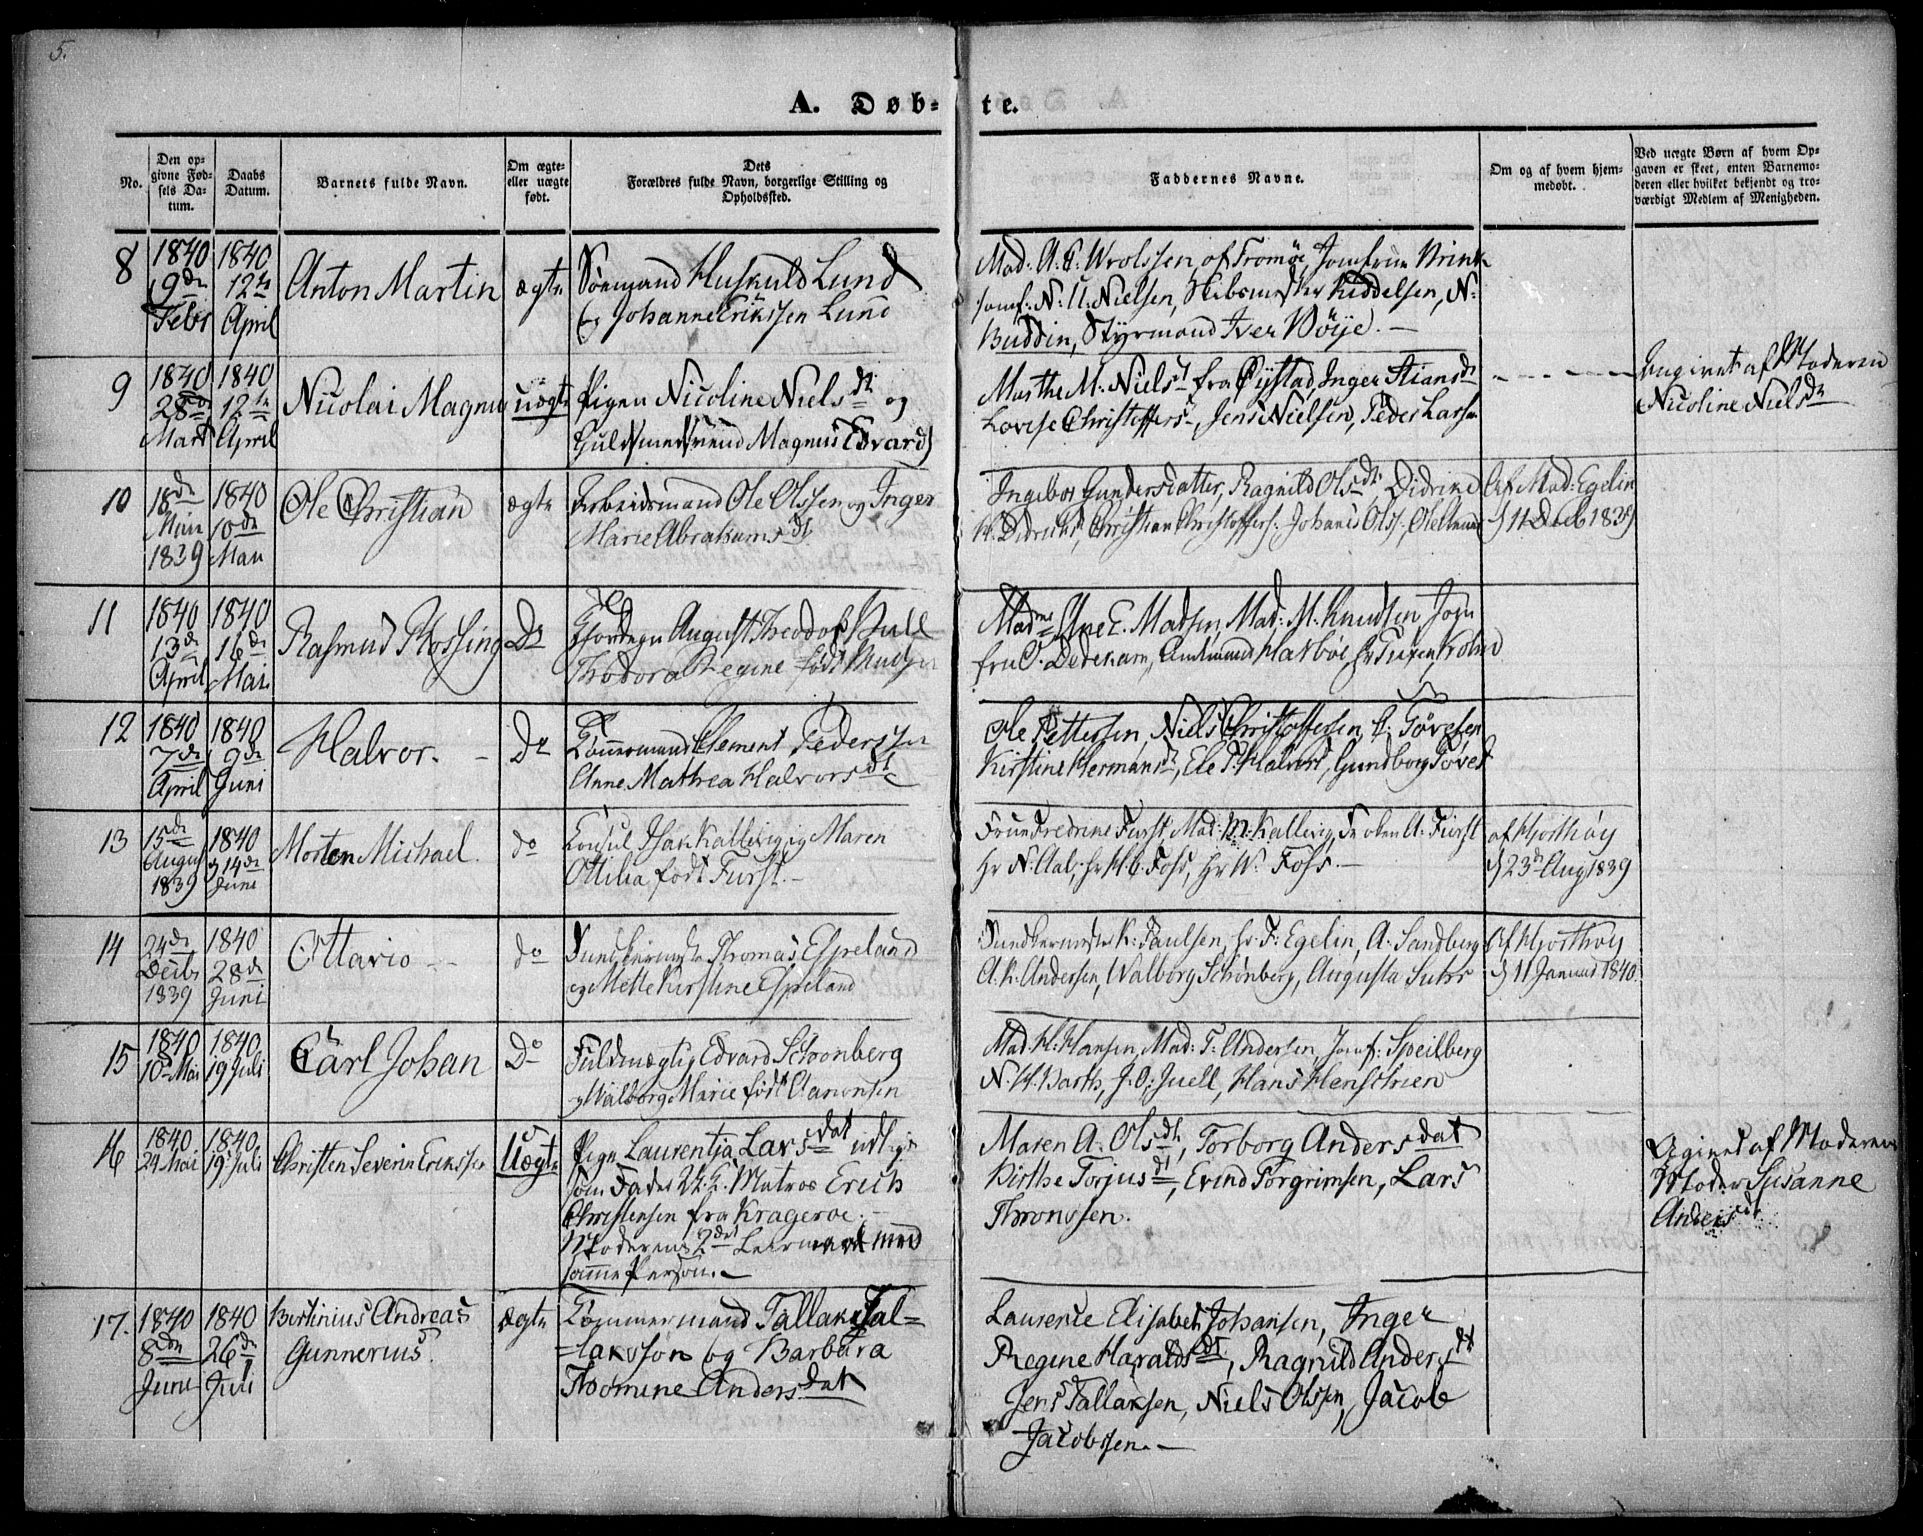 5.
A. Døb-
te.
No.
Den op-
givne Fød-
sels Da-
tum.
Daabs
Datum.
Barnets fulde Navn.
Om ægte-
eller uægte
født.
Dets
Forældres fulde Navn, borgerlige Stilling og
Opholdssted.
Faddernes Navne.
Om og af hvem hjem-
medøbt.
Ved uægte Børn af hvem Op-
gaven er skeet, enten Barnemo-
deren eller hvilket bekjendt og tro-
værdigt Medlem af Menigheden.
8
1840
9de
Febr
1840
12te
April
Anton Martin
ægte
Søemand Huskuld Lund
og Johanne Erikssen Lund
Mad. A. E. Wrolssen, af Tromøe, Jomfrue Brink
jomf. N. U. Nielsen, Skibsmester Kiddelsen, N.
Buddin, Styrmand Iver Børje. —
9
1840
28de
Mart
1840
12te
April
Nicolai Magnus
uægte
Pigen Nicoline Nielsdt og
Guldsmedsvend Magnus Edvards
Marthe M. Nielsdt fra Øijstad, Inger Stiansdt
Lovise Christoffers, Jens Nielsen, Peder Larsen
Angivet af Moderen
Nicoline Nielsdr
10
18de
1839
1840
10de
Mai
Ole Christian
ægte
Arbeidsmand Ole Olssen og Inger
Marie Abrahamsdt
Ingebor Gundersdatter, Ragnild Olsdt, Didrike
K. Didriks, Christian Christoffers. Johanis Olss,
Af Mad. Egelin
d 11 Decb 1839
11
1840
13de
April
1840
16de
Mai
Rasmus Rossing
Do
August Theodor Bull
Thodora Regine født
Madme Ane E. Madsen, Mad: M. Knudsen, Jom
fru O. Dedekam, Amtmand Harboe, hr Tuxen
12
1840
7de
April
1840
9de
Juni
Halvor. —
Do
Tømmermand Clement Pederssen
Anne Mathea Halvorsdt
Ole Pettersen, Niels Christoffersen, C. Tørresen
Kirstine Hermansdt, Ele T. Halvors, Gundborg Tøres
13
15de
August
1839
1840
d 14de
June
Morten Michael.
do
Consul Isak Kallevig og Maren
Ottilia, født Furst. —
Frue Fredrine Furst, Mad: M. Kallevig, Frøken A. Fürst
hr N. Aal, hr H. C. Foss, hr W. Foss. —
af Hjorthøy
d 23de Aug 1839
14
24de
Decbr
1839
1840
28de
Juni
Ottario —
do
Thomas Espeland
og Mette Kirstine Espeland
K. Paulsen, hr F. Egelin, A. Sandberg
A. K. Andersen, Walborg Schønberg, Augusta Suhr
Af Hjorthøy
d 11 Januar 1840.
15
1840
10de Mai
1840
19 Juli
Carl Johan
Do
Fuldmægtig Edvard Schonberg
og Walborg Marie født Aamonsen
Mad. H. Hansen, Mad: T. Andersen, Jomf: Speilberg
N. H. Barth, J. O. Juell, Hans Henschien
16
1840
24 Mai
1840
19 Juli
Christen Severin Erikssen
Uægte
Pigen Laurentja Larsdat udlagt
som Fader Matros Erich
Christensen fra Krageroe. —
Moderens 2det Leiermaal med
samme Person. —
Maren A. Olsdt, Torborg Andersdat
Birthe Torjusdt, Evind Torgrimsen, Lars
Thronssen.
Agivet af Moderens
Moder Susanne
Andersdt
17.
1840
8de
June
1840
26de
Juli
Bertinius Andreas
Gunnerius
Ægte
Tømmermand Tallak Tal=
=laksson og Barbara
Thomine Andersdat
Laurence Elisabet Johansen, Inger
Regine Haraldsdt, Ragnild Andersdt
Jens Tallaksen, Niels Olssen, Jacob
Jacobssen. —